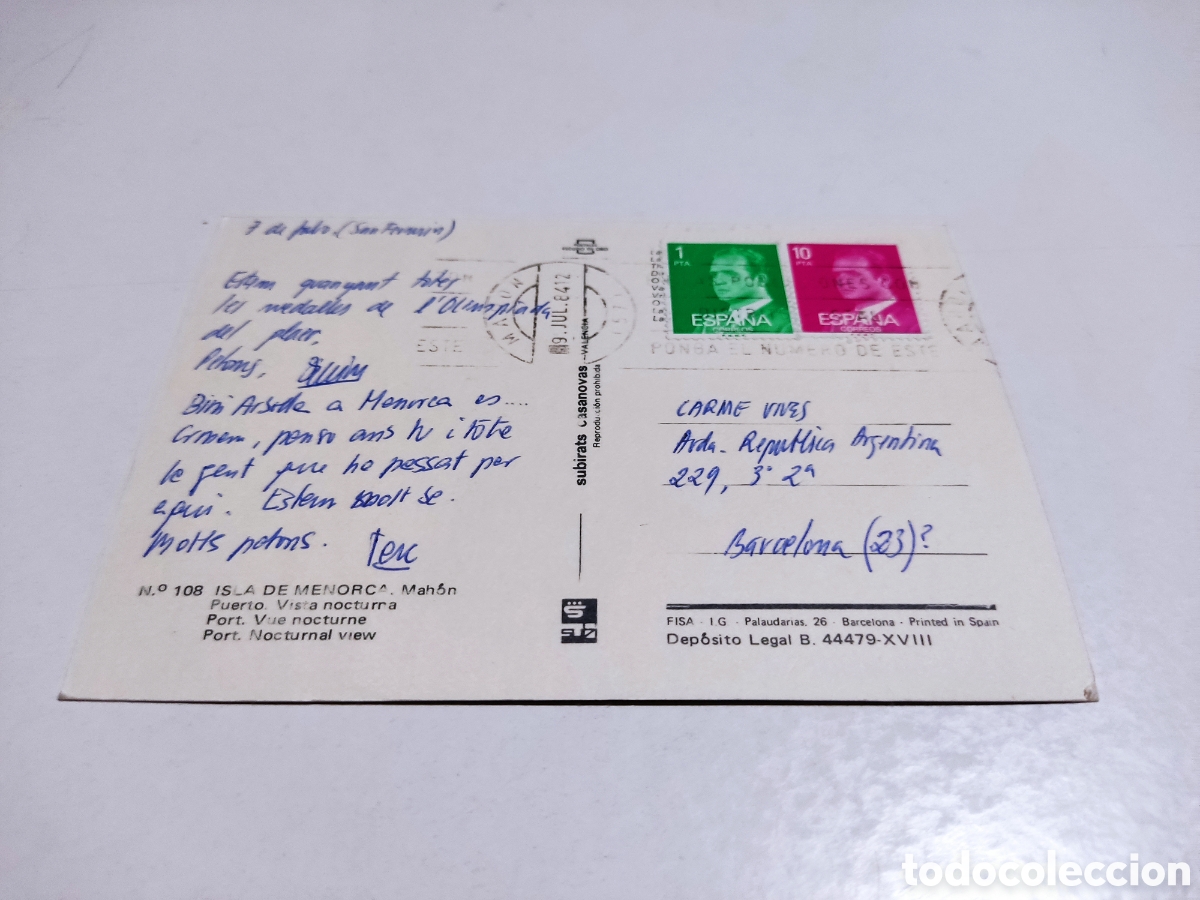 7 de Julio (San Fermín)
Estem guanyant totes
les medalles de l'Olimpiada
del plaer.
Petons, Quim
Bini Arsella a Menorca es....
Carmen, penso amb tu i tota
la gent que ha passat per
aqui. Estem molt bé.
Molts petons.
Nº 108 ISLA DE MENORCA. Mahón
Puerto. Vista nocturna
Port. Vue nocturne
Port. Nocturnal view
MAHON
9.JUL.84 12
ESTE
PONGA EL NUMERO DE ESTE
1
PTA
ESPAÑA
CORREOS
10
PTA
ESPAÑA
CORREOS
subirats casanovas - VALENCIA
Reproducción prohibida
CARME VIVES
Avda. República Argentina
229, 3º 2ª
Barcelona (23)?
FISA - I.G. - Palaudarias, 26 - Barcelona - Printed in Spain
Depósito Legal B. 44479-XVIII
todocoleccion